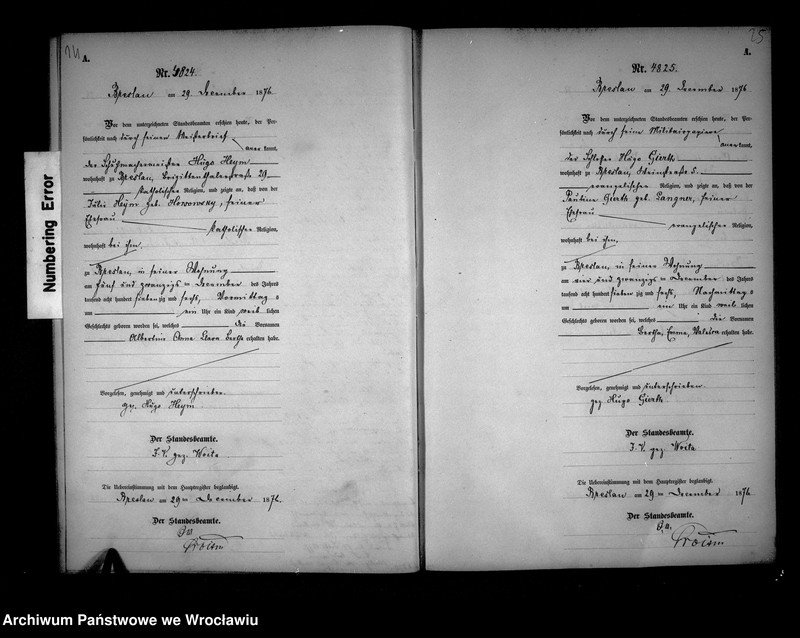 A.
Nr. 4824.
Breslau am 29. December 1876
Vor dem unterzeichneten Standesbeamten erschien heute, der Per-
sönlichkeit nach durch seinen Meisterbrief
kannt,
der Schuhmachermeister Hugo Heym
wohnhaft zu Breslau, Brigittenthalerstraße 29
katholischer Religion, und zeigte an, daß von der
Julie Heym geb. Howorosky, seiner
Ehefrau
katholischer Religion,
wohnhaft bei ihm,
zu Breslau, in seiner Wohnung
am fünf und zwanzigsten December des Jahres
tausend acht hundert siebenzig und sechs, Vormittags
um ein Uhr ein Kind weiblichen
Geschlechts geboren worden sei, welches die Vornamen
Albertine Anna Clara Bertha erhalten habe.
Vorgelesen, genehmigt und unterschrieben
gez. Hugo Heym
Der Standesbeamte.
I. V. gez. Woita
Die Uebereinstimmung mit dem Hauptregister beglaubigt.
Breslau am 29ten December 1876.
Der Standesbeamte.
25
A.
Nr. 4825.
Breslau am 29. December 1876
Vor dem unterzeichneten Standesbeamten erschien heute, der Per-
sönlichkeit nach durch seine Militairpapiere
kannt,
der Schlosser Hugo Gierth
wohnhaft zu Breslau, Steinstraße 5.
evangelischer Religion, und zeigte an, daß von der
Pauline Gierth geb. Langner, seiner
Ehefrau
evangelischer Religion,
wohnhaft bei ihm,
zu Breslau, in seiner Wohnung
am vier und zwanzigsten December des Jahres
tausend acht hundert siebenzig und sechs, Nachmittags
um ein Uhr ein Kind weiblichen
Geschlechts geboren worden sei, welches die Vornamen
Bertha, Emma, Valeska erhalten habe.
Vorgelesen, genehmigt und unterschrieben
gez Hugo Gierth
Der Standesbeamte.
I. V. gez. Woita
Die Uebereinstimmung mit dem Hauptregister beglaubigt.
Breslau am 29ten December 1876
Der Standesbeamte.
Numbering Error
Archiwum Państwowe we Wrocławiu